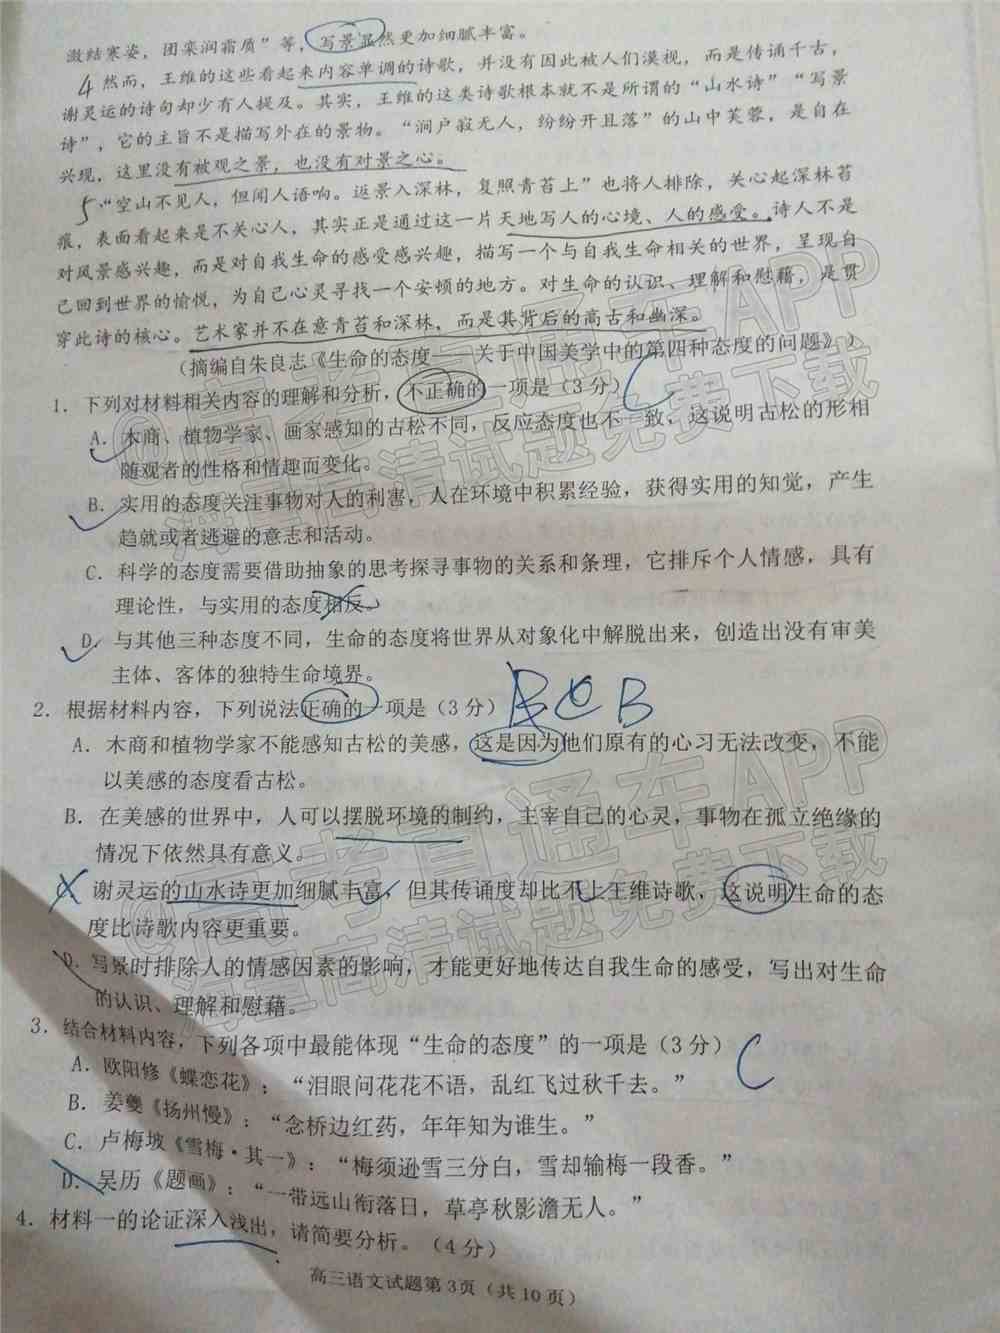 激结寒姿，团栾润霜质”等，写景显然更加细腻丰富。
4 然而，王维的这些看起来内容单调的诗歌，并没有因此被人们漠视，而是传诵千古，
谢灵运的诗句却少有人提及。其实，王维的这类诗歌根本就不是所谓的“山水诗”“写景
诗”，它的主旨不是描写外在的景物。“涧户寂无人，纷纷开且落”的山中芙蓉，是自在
兴现，这里没有被观之景，也没有对景之心。
5 “空山不见人，但闻人语响。返景入深林，复照青苔上”也将人排除，关心起深林苔
痕，表面看起来是不关心人，其实正是通过这一片天地写人的心境、人的感受。诗人不是
对风景感兴趣，而是对自我生命的感受感兴趣，描写一个与自我生命相关的世界，呈现自
己回到世界的愉悦，为自己心灵寻找一个安顿的地方。对生命的认识、理解和慰藉，是贯
穿此诗的核心。艺术家并不在意青苔和深林，而是其背后的高古和幽深。
（摘编自朱良志《生命的态度——关于中国美学中的第四种态度的问题》）
1．下列对材料相关内容的理解和分析，不正确的一项是（3分） C
A．木商、植物学家、画家感知的古松不同，反应态度也不一致，这说明古松的形相
随观者的性格和情趣而变化。
B．实用的态度关注事物对人的利害，人在环境中积累经验，获得实用的知觉，产生
趋就或者逃避的意志和活动。
C．科学的态度需要借助抽象的思考探寻事物的关系和条理，它排斥个人情感，具有
理论性，与实用的态度相反。
D．与其他三种态度不同，生命的态度将世界从对象化中解脱出来，创造出没有审美
主体、客体的独特生命境界。
2．根据材料内容，下列说法正确的一项是（3分） B C B
A．木商和植物学家不能感知古松的美感，这是因为他们原有的心习无法改变，不能
以美感的态度看古松。
B．在美感的世界中，人可以摆脱环境的制约，主宰自己的心灵，事物在孤立绝缘的
情况下依然具有意义。
谢灵运的山水诗更加细腻丰富，但其传诵度却比不上王维诗歌，这说明生命的态
度比诗歌内容更重要。
D．写景时排除人的情感因素的影响，才能更好地传达自我生命的感受，写出对生命
的认识、理解和慰藉。
3．结合材料内容，下列各项中最能体现“生命的态度”的一项是（3分） C
A．欧阳修《蝶恋花》：“泪眼问花花不语，乱红飞过秋千去。”
B．姜夔《扬州慢》：“念桥边红药，年年知为谁生。”
C．卢梅坡《雪梅·其一》：“梅须逊雪三分白，雪却输梅一段香。”
D．吴历《题画》：“一带远山衔落日，草亭秋影澹无人。”
4．材料一的论证深入浅出，请简要分析。（4分）
高三语文试题第3页（共10页）
@高考直通车APP
海量高清试题免费下载
@高考直通车APP
海量高清试题免费下载